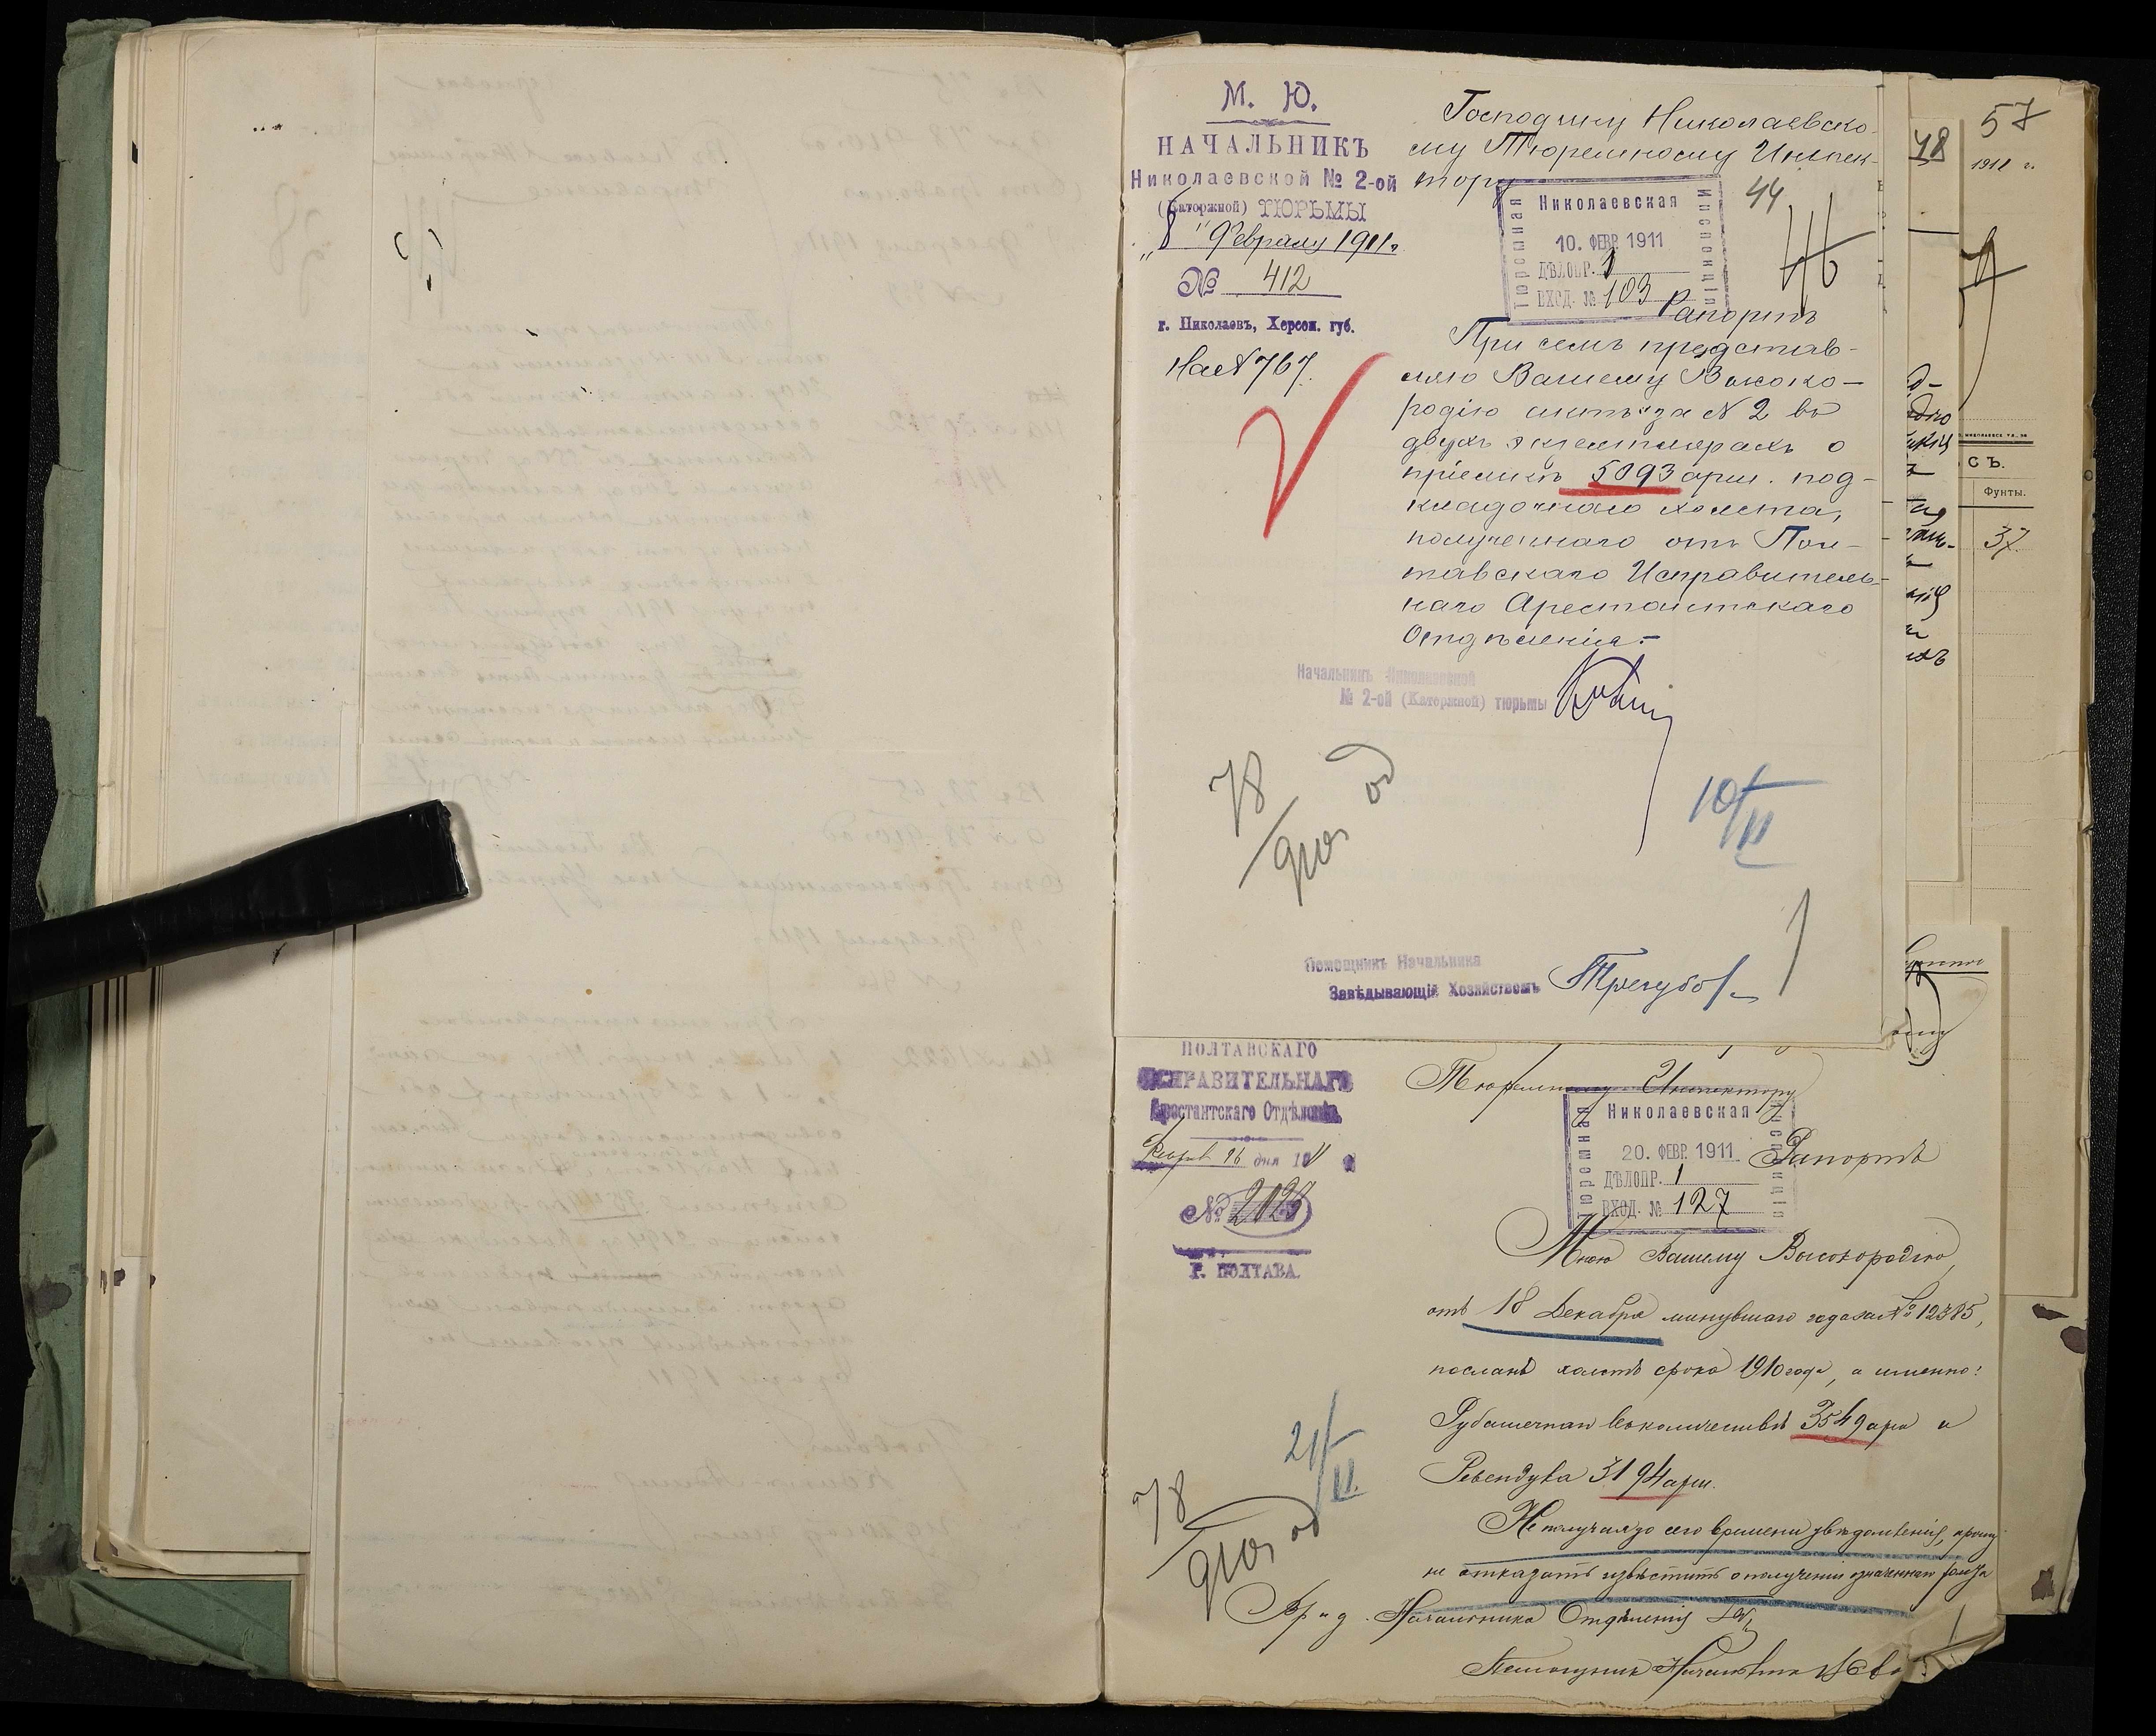 М. Ю.
НАЧАЛЬНИКЪ
Николаевской № 2-ой
(Каторжной) ТЮРЬМЫ
„8" Февраля 1911 г.
№ 412
г. Николаевъ, Херсон. губ.
На № 767.
Господину Николаевско-
му Тюремному Инспек-
тору
44
46
Николаевская
Тюремная
Инспекція
10. ФЕВР. 1911
ДѢЛОПР. 1
ВХОД. № 103
Рапортъ
При семъ представ-
ляю Вашему Высоко-
родію актъ за № 2 въ
двухъ экземплярахъ о
пріемкѣ 5093 арш. под-
кладочнаго холста,
полученнаго отъ Пол-
тавскаго Исправитель-
наго Арестантскаго
Отдѣленія.-
Начальникъ Николаевской
№ 2-ой (Каторжной) тюрьмы
78
910 од
10/II
Помощникъ Начальника
Завѣдывающій Хозяйствомъ
Трегубо
ПОЛТАВСКАГО
ИСПРАВИТЕЛЬНАГО
Арестантскаго Отдѣленія
16 дня 1911
№ 2028
Г. ПОЛТАВА.
Тюремному Инспектору
Николаевская
Тюремная
Инспекція
20. ФЕВР. 1911
ДѢЛОПР. 1
ВХОД. № 127
Рапортъ
Мною Вашему Высокородію,
отъ 18 Декабря минувшаго года за № 12385,
посланъ холстъ срока 1910 года, а именно:
Рубашечнаго въ количествѣ 3549 арш и
Ревендука 3194 арш.
Не получая до сего времени увѣдомленія, прошу
не отказать извѣстить о полученіи означеннаго
21/II
78
910 од
Вр. и д. Начальника Отдѣленія
Помощникъ Начальника
48
57
1911 г.
СЪ.
Фунты.
37.